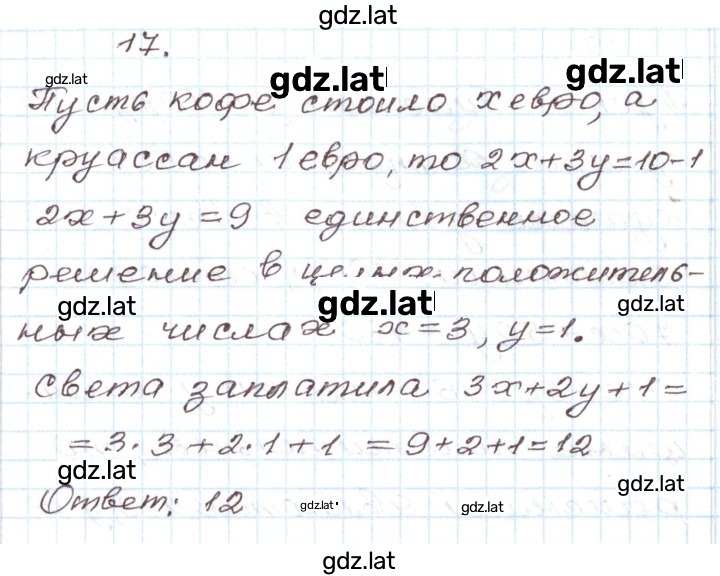 gdz.lat
17.
gdz.lat gdz.lat gdz.lat
Пусть кофе стоило x евро, а
круассан 1 евро, то 2x+3y=10-1
2x+3y=9 единственное
решение в целых положитель-
gdz.lat gdz.lat gdz.lat
ных числах x=3, y=1.
света заплатила 3x+2y+1=
=3·3+2·1+1 =9+2+1=12
gdz.lat gdz.lat
Ответ: 12 gdz.lat gdz.lat
gdz.lat